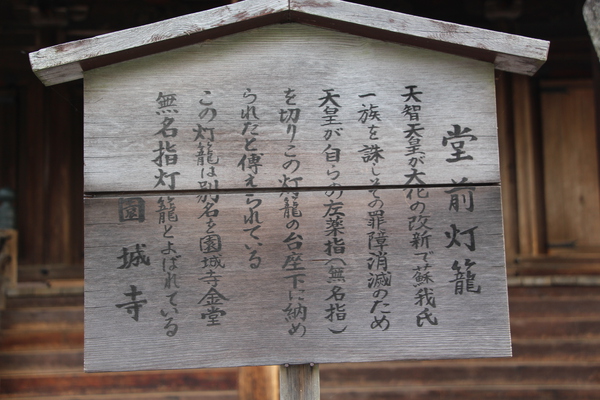 堂前灯籠
天智天皇が大化の改新で蘇我氏
一族を誅しその罪障消滅のため
天皇が自らの左薬指(無名指)
を切りこの灯籠の台座下に納め
られたと傳えられている
この灯籠は別名を園城寺金堂
無名指灯籠とよばれている
園城寺